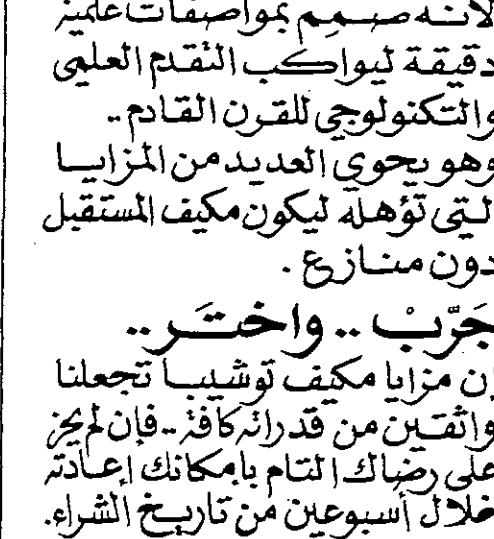 لأنه صمم بمواصفات علمية
دقيقة ليواكب التقدم العلمي
والتكنولوجي للقرن القادم..
وهو يحوي العديد من المزايا
التي تؤهله ليكون مكيف المستقبل
دون منازع.
جَرّبْ .. واختَر ..
إن مزايا مكيف توشيبا تجعلنا
واثقين من قدراته كافة.. فإن لم يحز
على رضاك التام بإمكانك إعادته
خلال أسبوعين من تاريخ الشراء.